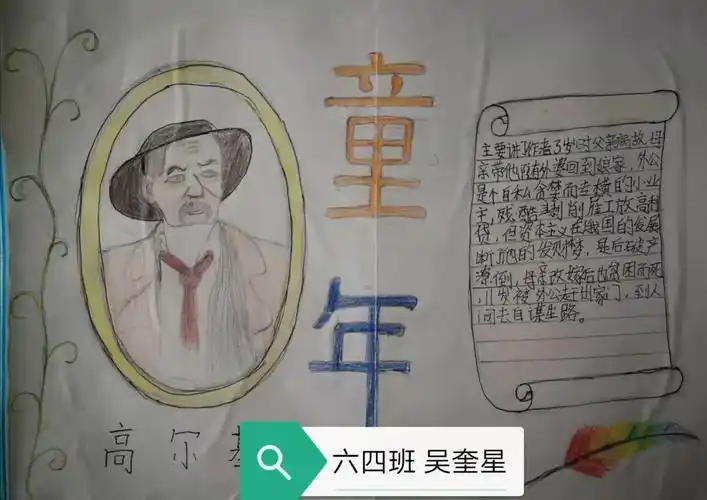 童年
主要讲作者3岁时父亲病故,母
亲带他随外婆回到娘家,外公
是个自私贪婪而专横的小业
主,残酷剥削雇工放高利
贷,但资本主义在俄国的发展
断了他的发财梦,最后破产
潦倒,母亲改嫁后因贫困而死
11岁被外公赶出家门,到人
间去自谋生路。
高尔基
六四班 吴奎星